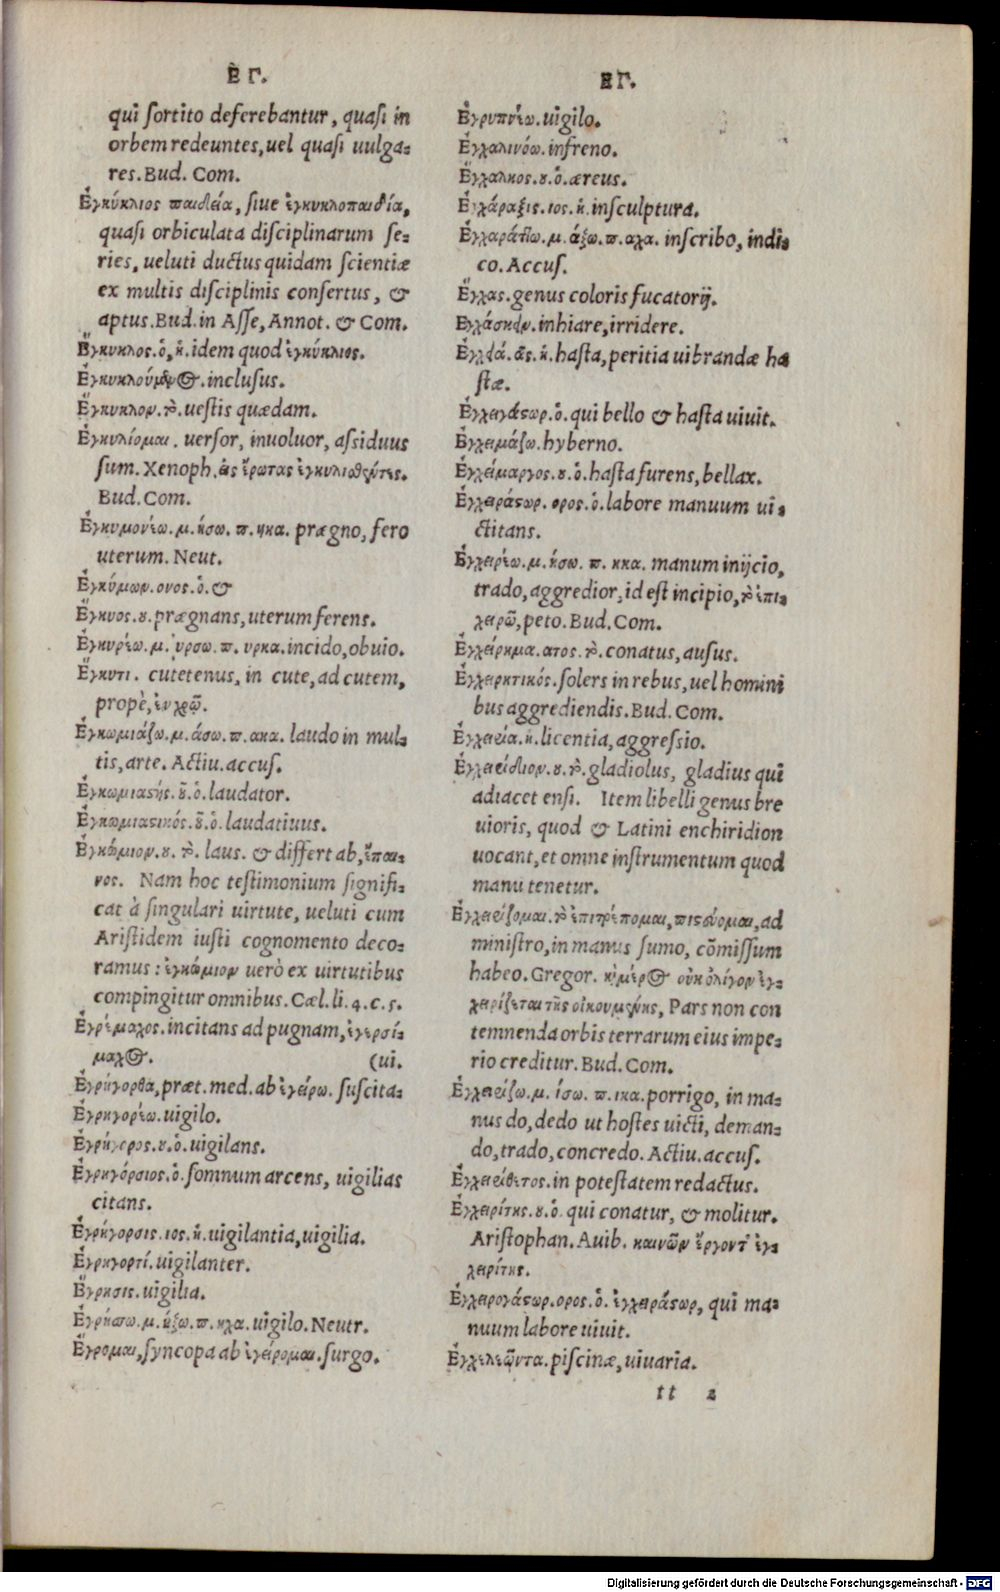 ἘΓ.
qui sortito deferebantur, quasi in
orbem redeuntes, uel quasi uulga-
res. Bud. Com.
Ἐγκύκλιος παιδεία, siue ἐγκυκλοπαιδία,
quasi orbiculata disciplinarum se-
ries, ueluti ductus quidam scientiæ
ex multis disciplinis consertus, &
aptus. Bud. in Asse, Annot. & Com.
Ἔγκυκλος. ὁ, ἡ. idem quod ἐγκύκλιος.
Ἐγκυκλούμενος. inclusus.
Ἔγκυκλον. τὸ. uestis quædam.
Ἐγκυλίομαι. uersor, inuoluor, assiduus
sum. Xenoph. εἰς ἔρωτας ἐγκυλισθέντες.
Bud. Com.
Ἐγκυμονέω. μ. ήσω. π. ηκα. prægno, fero
uterum. Neut.
Ἐγκύμων. ονος. ὁ. &
Ἔγκυος. ου. prægnans, uterum ferens.
Ἐγκυρέω. μ. ύρσω. π. υρκα. incido, obuio.
Ἔγκυτι. cutetenus, in cute, ad cutem,
propè, ἐν χρῷ.
Ἐγκωμιάζω. μ. άσω. π. ακα. laudo in mul-
tis, arte. Actiu. accus.
Ἐγκωμιαστής. οῦ. ὁ. laudator.
Ἐγκωμιαστικός. οῦ. ὁ. laudatiuus.
Ἐγκώμιον. ου. τὸ. laus. & differt ab, ἔπαι-
νος. Nam hoc testimonium signifi-
cat à singulari uirtute, ueluti cum
Aristidem iusti cognomento deco-
ramus: ἐγκώμιον uerò ex uirtutibus
compingitur omnibus. Cæl. li. 4. c. 5.
Ἐγρέμαχος. incitans ad pugnam, ἐγερσί-
μαχος. (ui.
Ἐγρήγορθα, præt. med. ab ἐγείρω. suscita-
Ἐγρηγορέω. uigilo.
Ἐγρήγορος. ου. ὁ. uigilans.
Ἐγρηγόρσιος. ὁ. somnum arcens, uigilias
citans.
Ἐγρήγορσις. ιος. ἡ. uigilantia, uigilia.
Ἐγρηγορτί. uigilanter.
Ἔγρησις. uigilia.
Ἐγρήσσω. μ. ήξω. π. ηχα. uigilo. Neutr.
Ἔγρομαι, syncopa ab ἐγείρομαι. surgo.
ΕΓ.
Ἐγρυπνέω. uigilo.
Ἐγχαλινόω. infreno.
Ἔγχαλκος. ου. ὁ. æreus.
Ἐγχάραξις. ιος. ἡ. insculptura.
Ἐγχαράττω. μ. άξω. π. αχα. inscribo, indi-
co. Accus.
Ἔγχας. genus coloris fucatorij.
Ἐγχάσκειν. inhiare, irridere.
Ἐγχεία. ας. ἡ. hasta, peritia uibrandæ ha
stæ.
Ἐγχειγάστωρ. ὁ. qui bello & hasta uiuit.
Ἐγχειμάζω. hyberno.
Ἐγχείμαργος. ου. ὁ. hasta furens, bellax.
Ἐγχειράστωρ. ορος. ὁ. labore manuum ui-
ctitans.
Ἐγχειρέω. μ. ήσω. π. ηκα. manum inijcio,
trado, aggredior, id est incipio, τὸ ἐπι-
χειρῶ, peto. Bud. Com.
Ἐγχείρημα. ατος. τὸ. conatus, ausus.
Ἐγχειρητικός. solers in rebus, uel homini
bus aggrediendis. Bud. Com.
Ἐγχειρία. ἡ. licentia, aggressio.
Ἐγχειρίδιον. ου. τὸ. gladiolus, gladius qui
adiacet ensi. Item libelli genus bre
uioris, quod & Latini enchiridion
uocant, et omne instrumentum quod
manu tenetur.
Ἐγχειρίζομαι. τὸ ἐπιτρέπομαι, πιστεύομαι, ad
ministro, in manus sumo, cōmissum
habeo. Gregor. καὶ μέρος οὐκ ὀλίγον ἐγ-
χειρίζεται τῆς οἰκουμένης, Pars non con
temnenda orbis terrarum eius impe-
rio creditur. Bud. Com.
Ἐγχειρίζω. μ. ίσω. π. ικα. porrigo, in ma-
nus do, dedo ut hostes uicti, deman-
do, trado, concredo. Actiu. accus.
Ἐγχειρίθετος. in potestatem redactus.
Ἐγχειρίτης. ου. ὁ. qui conatur, & molitur.
Aristophan. Auib. καινῶν ἔργοντ᾽ ἐγ-
χειρίτης.
Ἐγχειρογάστωρ. ορος. ὁ. ἐγχειράστωρ, qui ma-
nuum labore uiuit.
Ἐγχελεῶντα. piscinæ, uiuaria.
tt 2
Digitalisierung gefördert durch die Deutsche Forschungsgemeinschaft - DFG